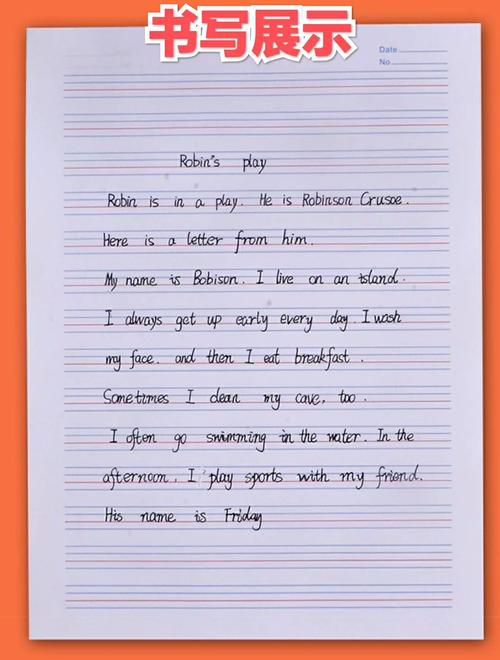 书写展示
Date
No
Robin's play
Robin is in a play. He is Robinson Crusoe.
Here is a letter from him.
My name is Bobison. I live on an island.
I always get up early every day. I wash
my face. and then I eat breakfast.
Sometimes I clean my cave, too.
I often go swimming in the water. In the
afternoon, I play sports with my friend.
His name is Friday